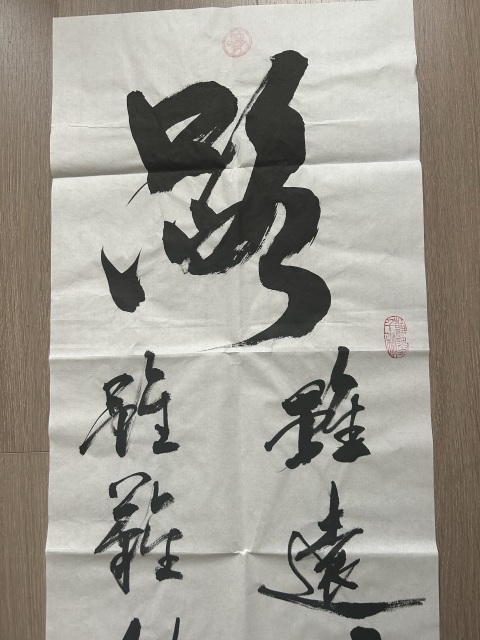 路
雖遠
雖難